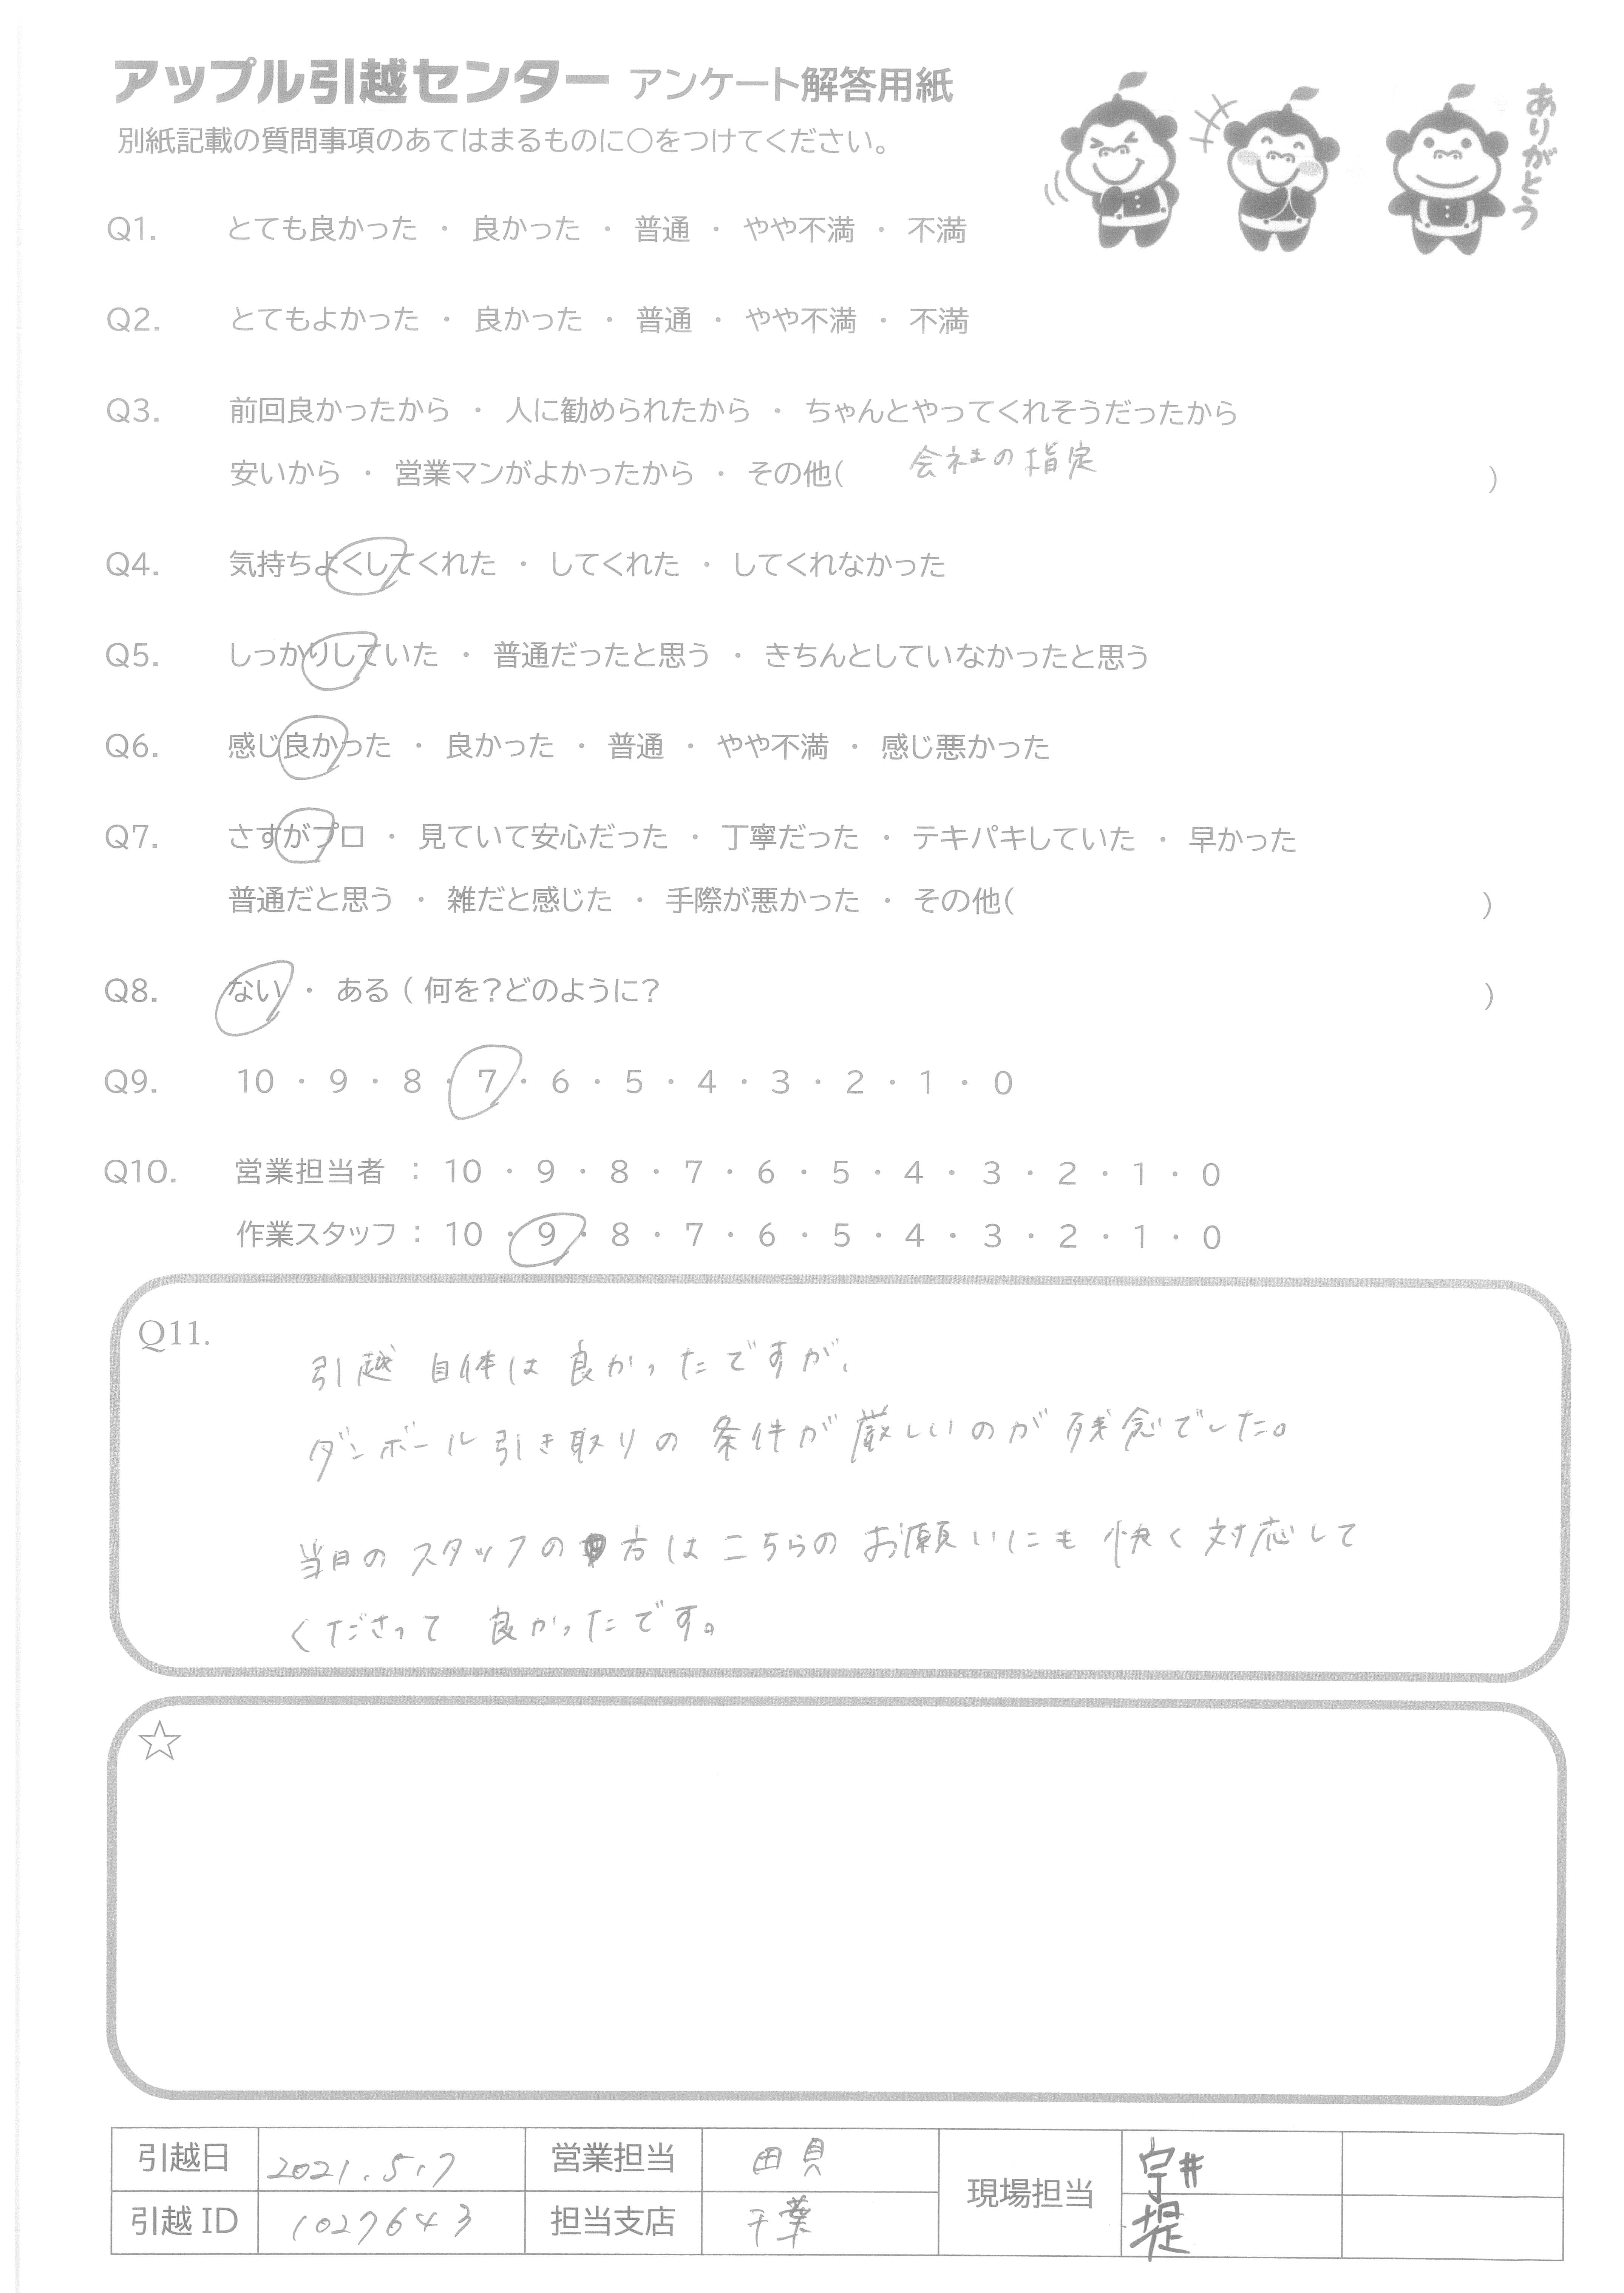 アップル引越センター アンケート解答用紙
別紙記載の質問事項のあてはまるものに○をつけてください。
ありがとう
Q1. とても良かった ・ 良かった ・ 普通 ・ やや不満 ・ 不満
Q2. とてもよかった ・ 良かった ・ 普通 ・ やや不満 ・ 不満
Q3. 前回良かったから ・ 人に勧められたから ・ ちゃんとやってくれそうだったから
安いから ・ 営業マンがよかったから ・ その他( 会社の指定 )
Q4. 気持ちよくしてくれた ・ してくれた ・ してくれなかった
Q5. しっかりしていた ・ 普通だったと思う ・ きちんとしていなかったと思う
Q6. 感じ良かった ・ 良かった ・ 普通 ・ やや不満 ・ 感じ悪かった
Q7. さすがプロ ・ 見ていて安心だった ・ 丁寧だった ・ テキパキしていた ・ 早かった
普通だと思う ・ 雑だと感じた ・ 手際が悪かった ・ その他( )
Q8. ない ・ ある ( 何を?どのように? )
Q9. 10 ・ 9 ・ 8 ・ 7 ・ 6 ・ 5 ・ 4 ・ 3 ・ 2 ・ 1 ・ 0
Q10. 営業担当者 : 10 ・ 9 ・ 8 ・ 7 ・ 6 ・ 5 ・ 4 ・ 3 ・ 2 ・ 1 ・ 0
作業スタッフ : 10 ・ 9 ・ 8 ・ 7 ・ 6 ・ 5 ・ 4 ・ 3 ・ 2 ・ 1 ・ 0
Q11.
引越 自体は良かったですが、
ダンボール引き取りの条件が厳しいのが残念でした。
当日のスタッフの方はこちらのお願いにも快く対応して
くださって 良かったです。
☆
引越日 2021.5.7 営業担当 田貝 現場担当 宇井
引越 ID 1027643 担当支店 千葉 堤